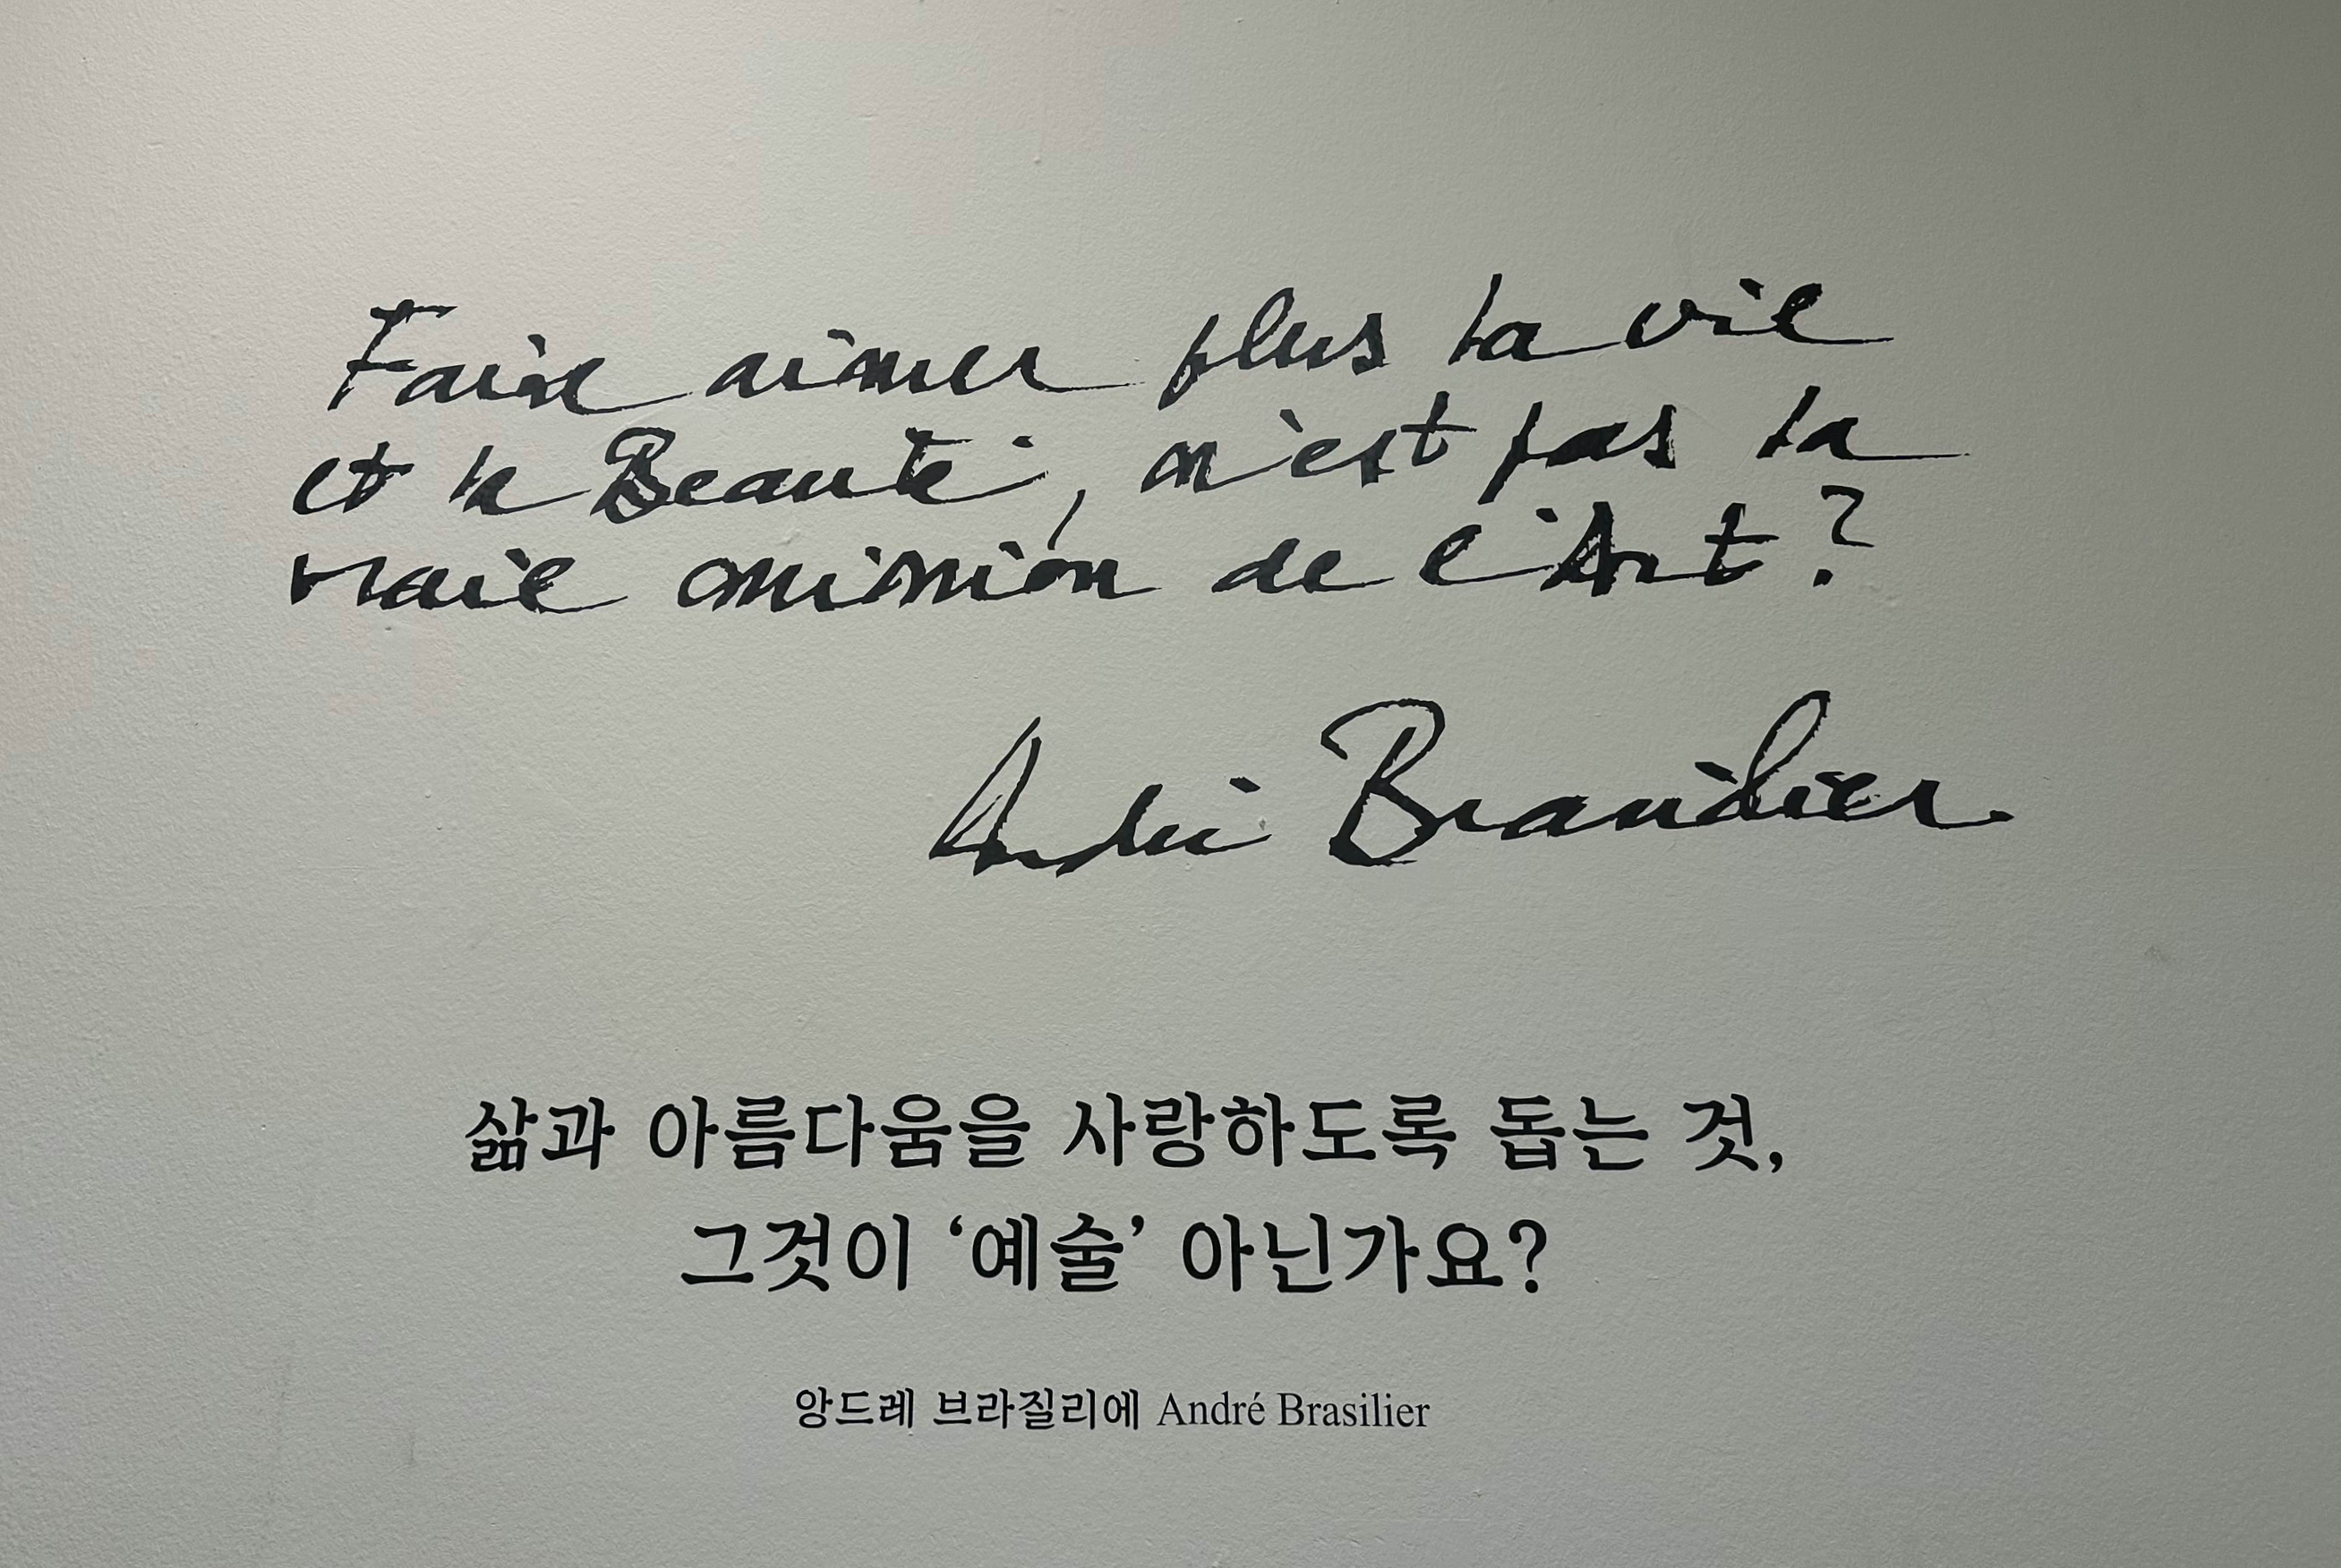 Faire aimer plus la vie
et la Beauté, n'est pas la
vraie mission de l'Art ?
André Brasilier
삶과 아름다움을 사랑하도록 돕는 것,
그것이 ‘예술’ 아닌가요?
앙드레 브라질리에 André Brasilier